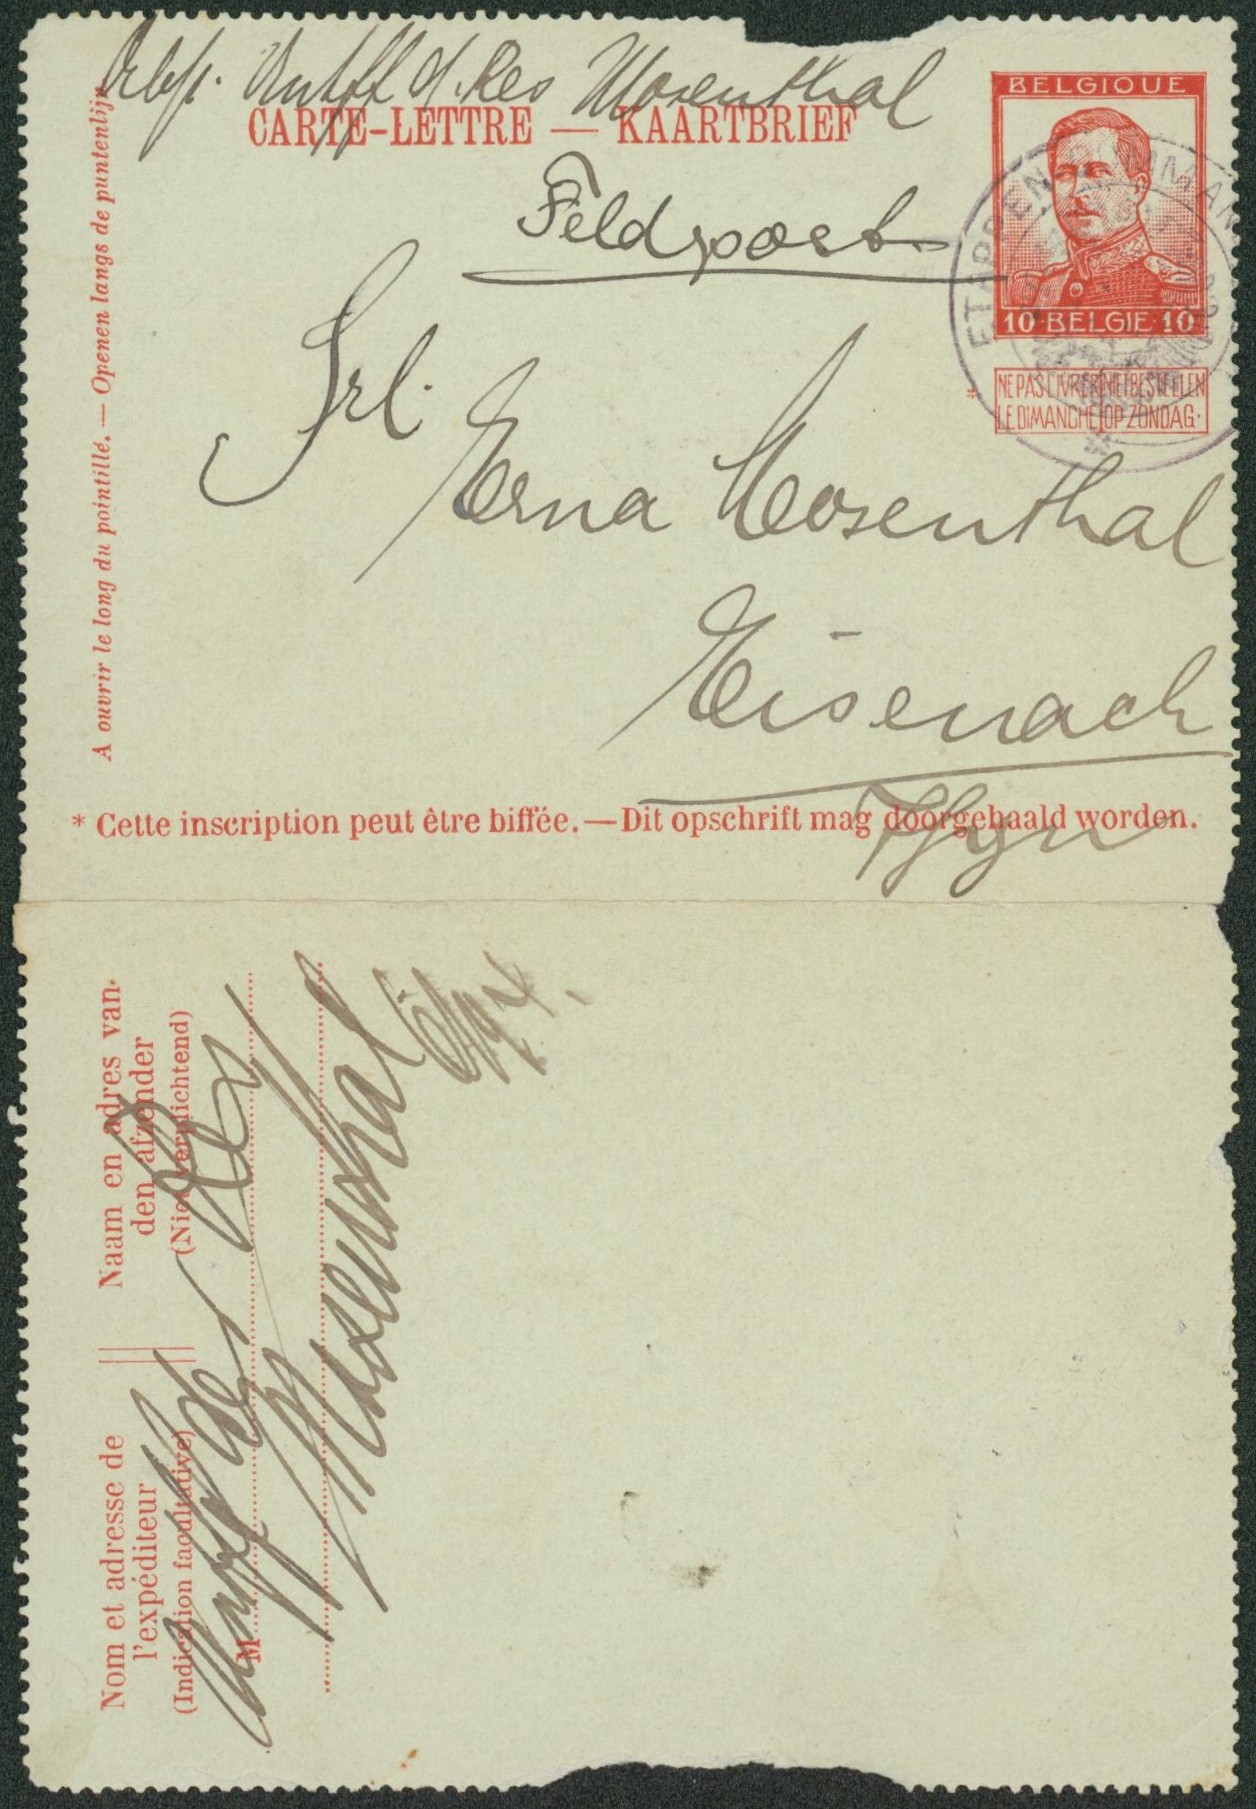 Untffz d. Res Mosenthal
CARTE-LETTRE — KAARTBRIEF
BELGIQUE
10 BELGIE 10
ETAPPEN
Feldpost
* NE PAS LIVRER NIET BESTELLEN
LE DIMANCHE OP ZONDAG.
Frl.
Erna Mosenthal
Eisenach
A ouvrir le long du pointillé. — Openen langs de puntenlijn.
* Cette inscription peut être biffée. — Dit opschrift mag doorgehaald worden.
Nom et adresse de
l'expéditeur
(Indication facultative)
Naam en adres van
den afzender
(Niet verplichtend)
M
Res
Mosenthal